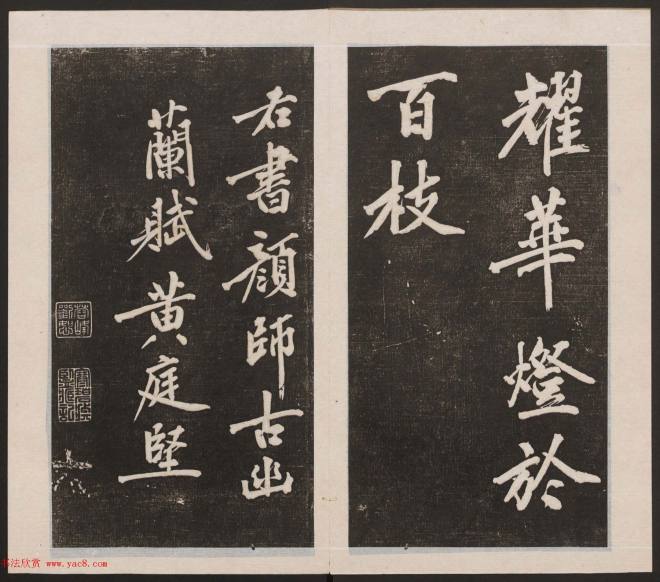 耀華燈於
百枝
右書顏師古幽
蘭賦黃庭堅
书法欣赏 www.yac8.com